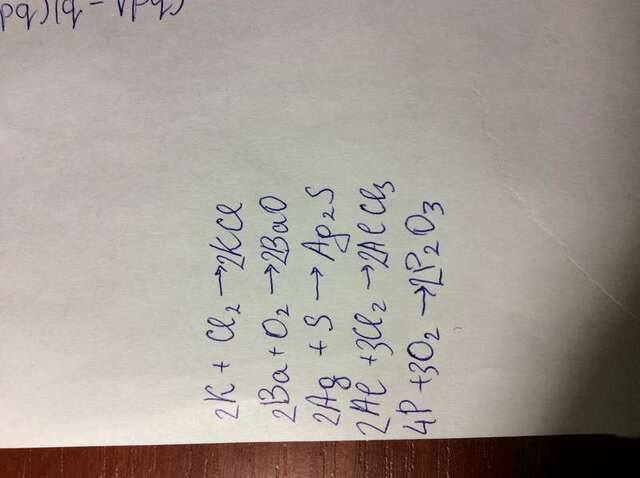 2K + Cl₂ → 2KCl
2Ba + O₂ → 2BaO
2Ag + S → Ag₂S
2Al + 3Cl₂ → 2AlCl₃
4P + 3O₂ → 2P₂O₃